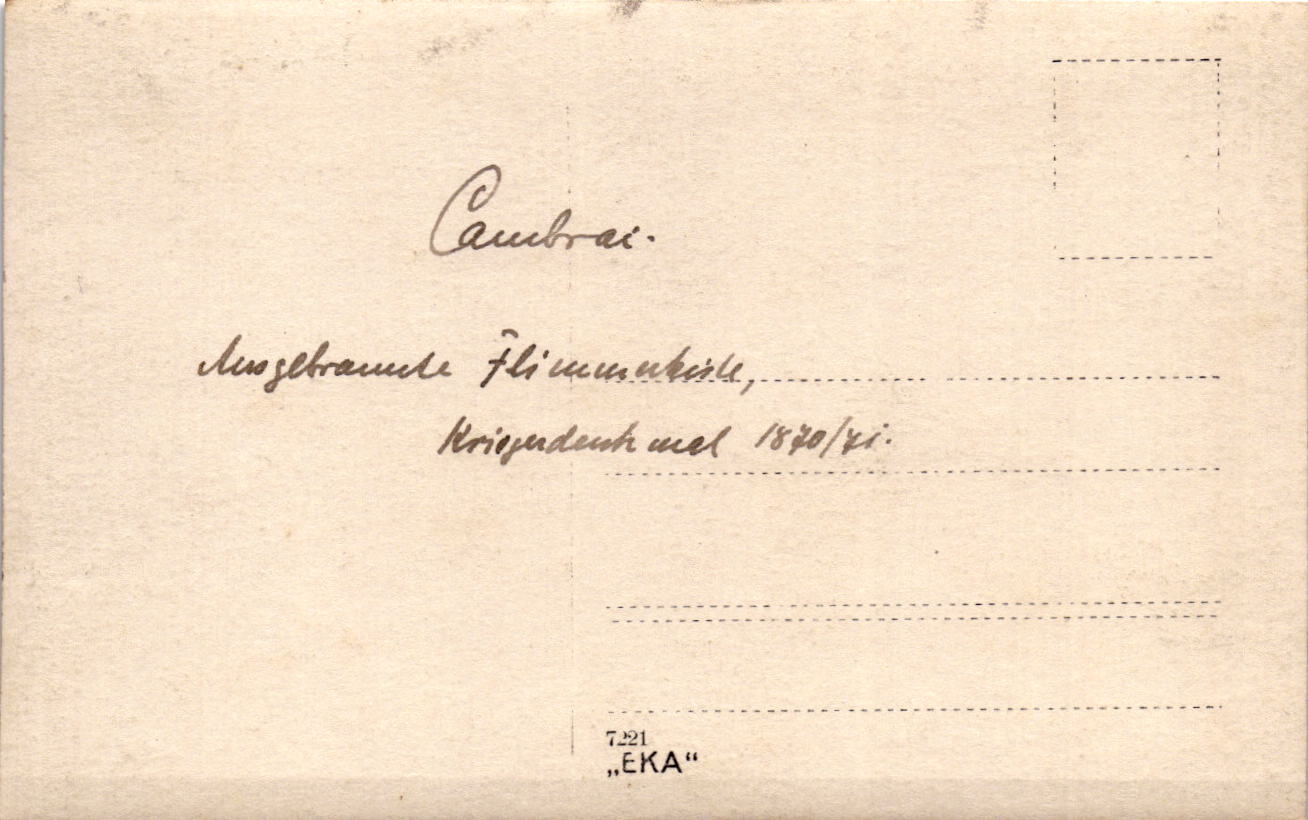 Cambrai.
Ausgebrannte Flimmerkiste,
Kriegerdenkmal 1870/71.
7221
„EKA“